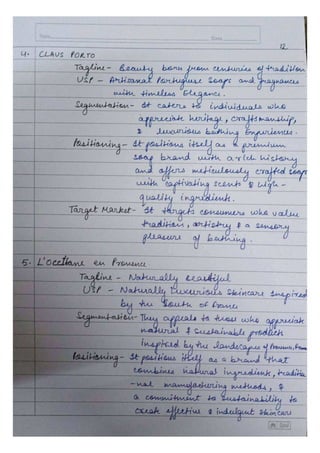 Date
12
4. CLAUS PORTO
Tagline - Beauty born from centuries of tradition
USP - Artisanal Portuguese soaps and fragrances
with timeless elegance.
Segmentation - It caters to individuals who
appreciate heritage, craftsmanship,
& luxurious bathing experiences.
Positioning - It positions itself as a premium
soap brand with a rich history
and offers meticulously crafted soaps
with captivating scents & high-
quality ingredients.
Target Market - It targets consumers who value
tradition, artistry & a sensory
pleasure of bathing.
5. L'Occitane en Provence
Tagline - Naturally beautiful
USP - Naturally luxurious skincare inspired
by the South of France
Segmentation - They appeals to those who appreciate
natural & sustainable products
inspired by the landscapes of Provence,
Positioning - It positions itself as a brand that
combines natural ingredients, traditio
-nal manufacturing methods, &
a commitment to sustainability to
create effective & indulgent skincare